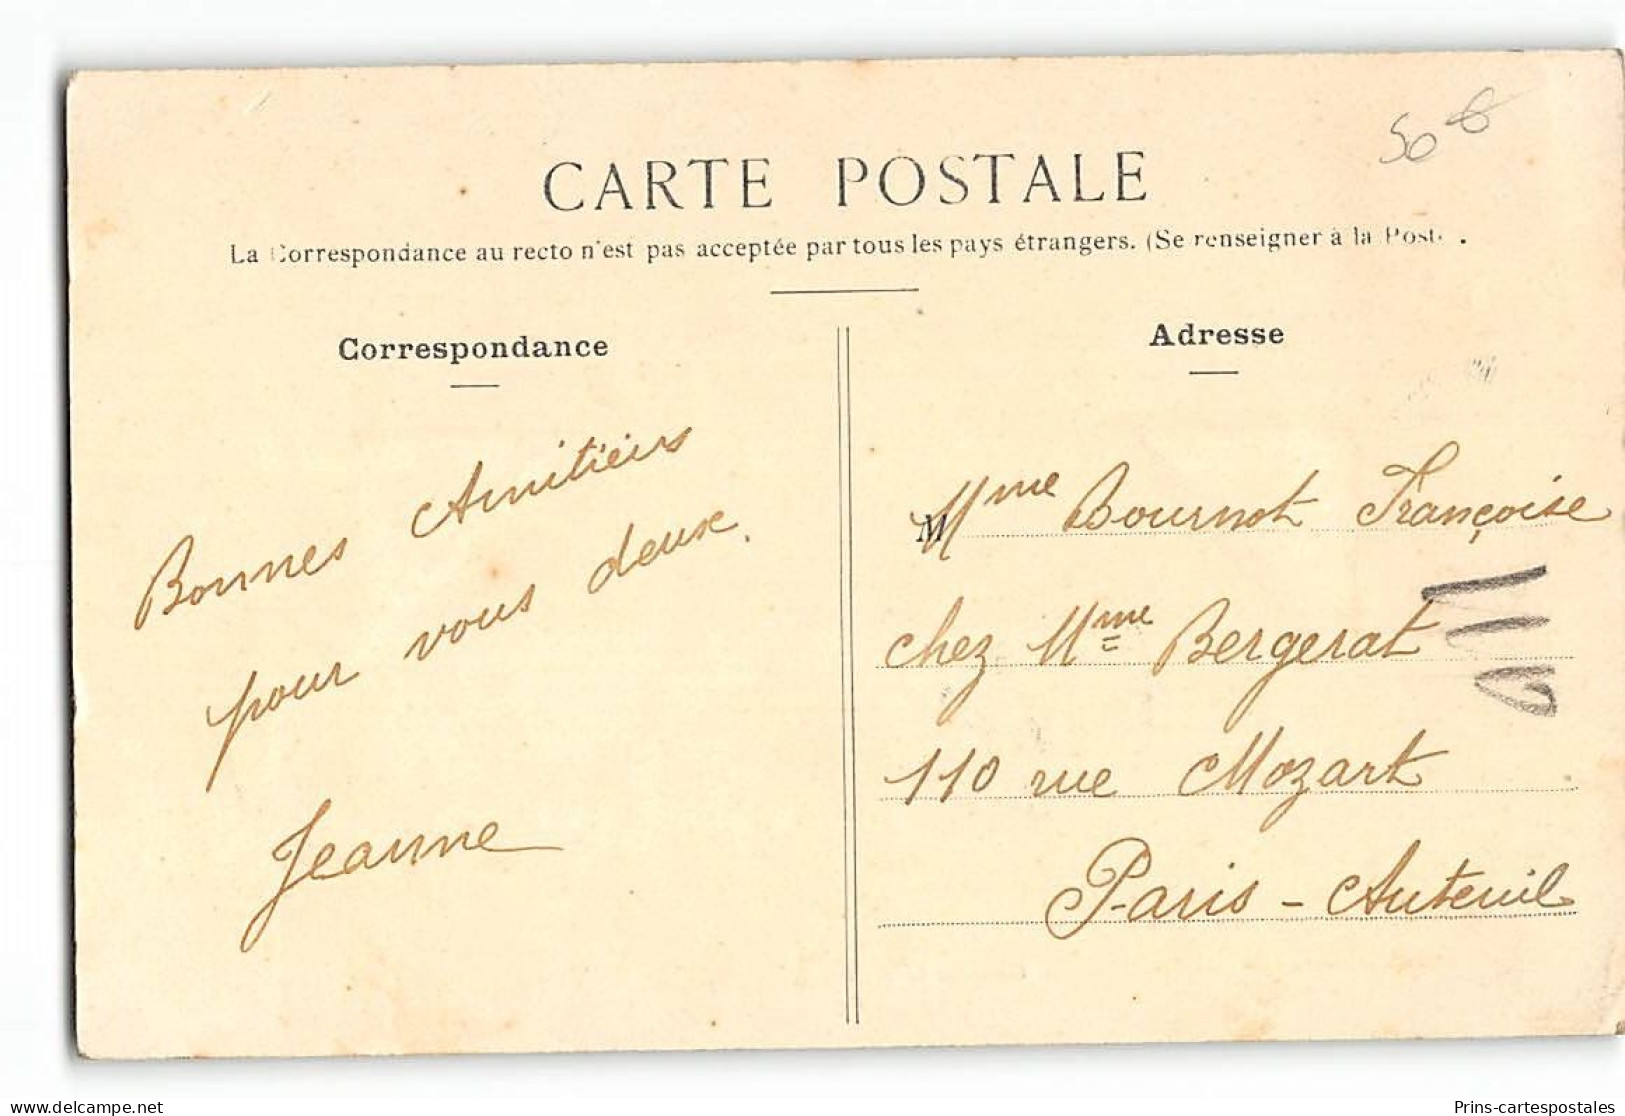 50 €
CARTE POSTALE
La Correspondance au recto n'est pas acceptée par tous les pays étrangers. (Se renseigner à la Poste.
Correspondance
Bonnes Amitiéis
pour vous deux.
Jeanne
Adresse
M Mme Bournot Françoise
chez Mme Bergerat
110 rue Mozart
Paris - Auteuil
delcampe.net
Prins-cartespostales